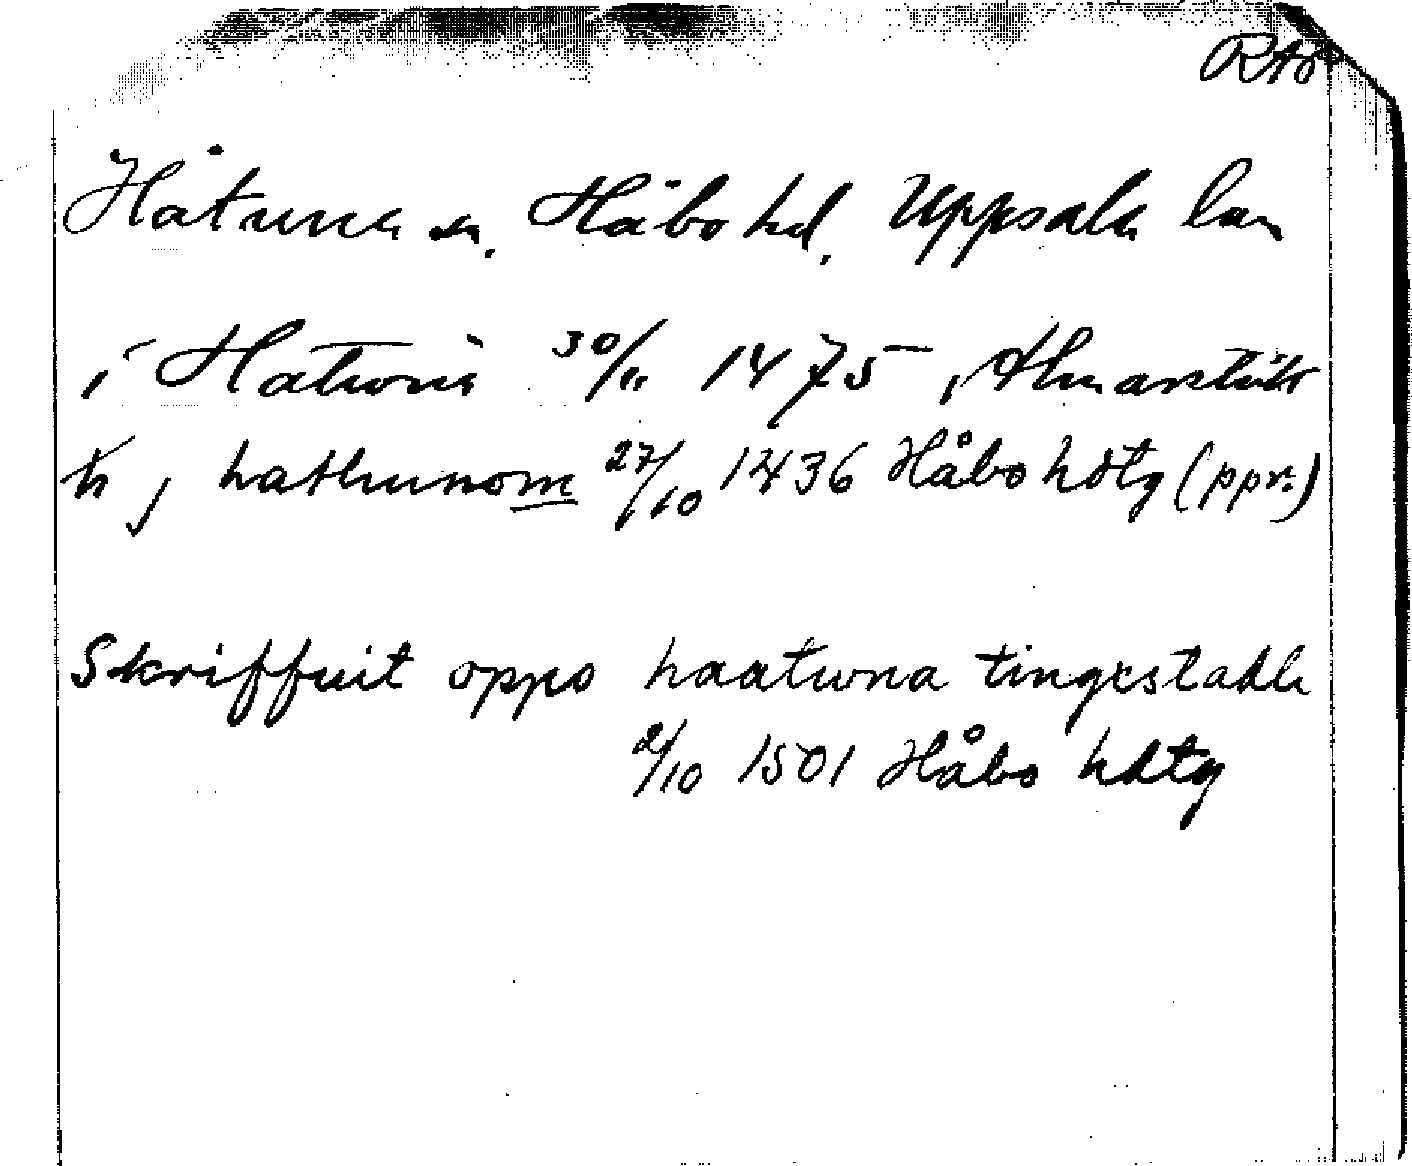 RAÖ
Håtuna sn. Håbo hd. Uppsala län
i Hatwna 30/11 1475, Almarstäk
tr j hathunom 27/10 1436 Håbo hdtg (ppr.)
Skriffuit oppo haatwna tingestadh
2/10 1501 Håbo hdtg